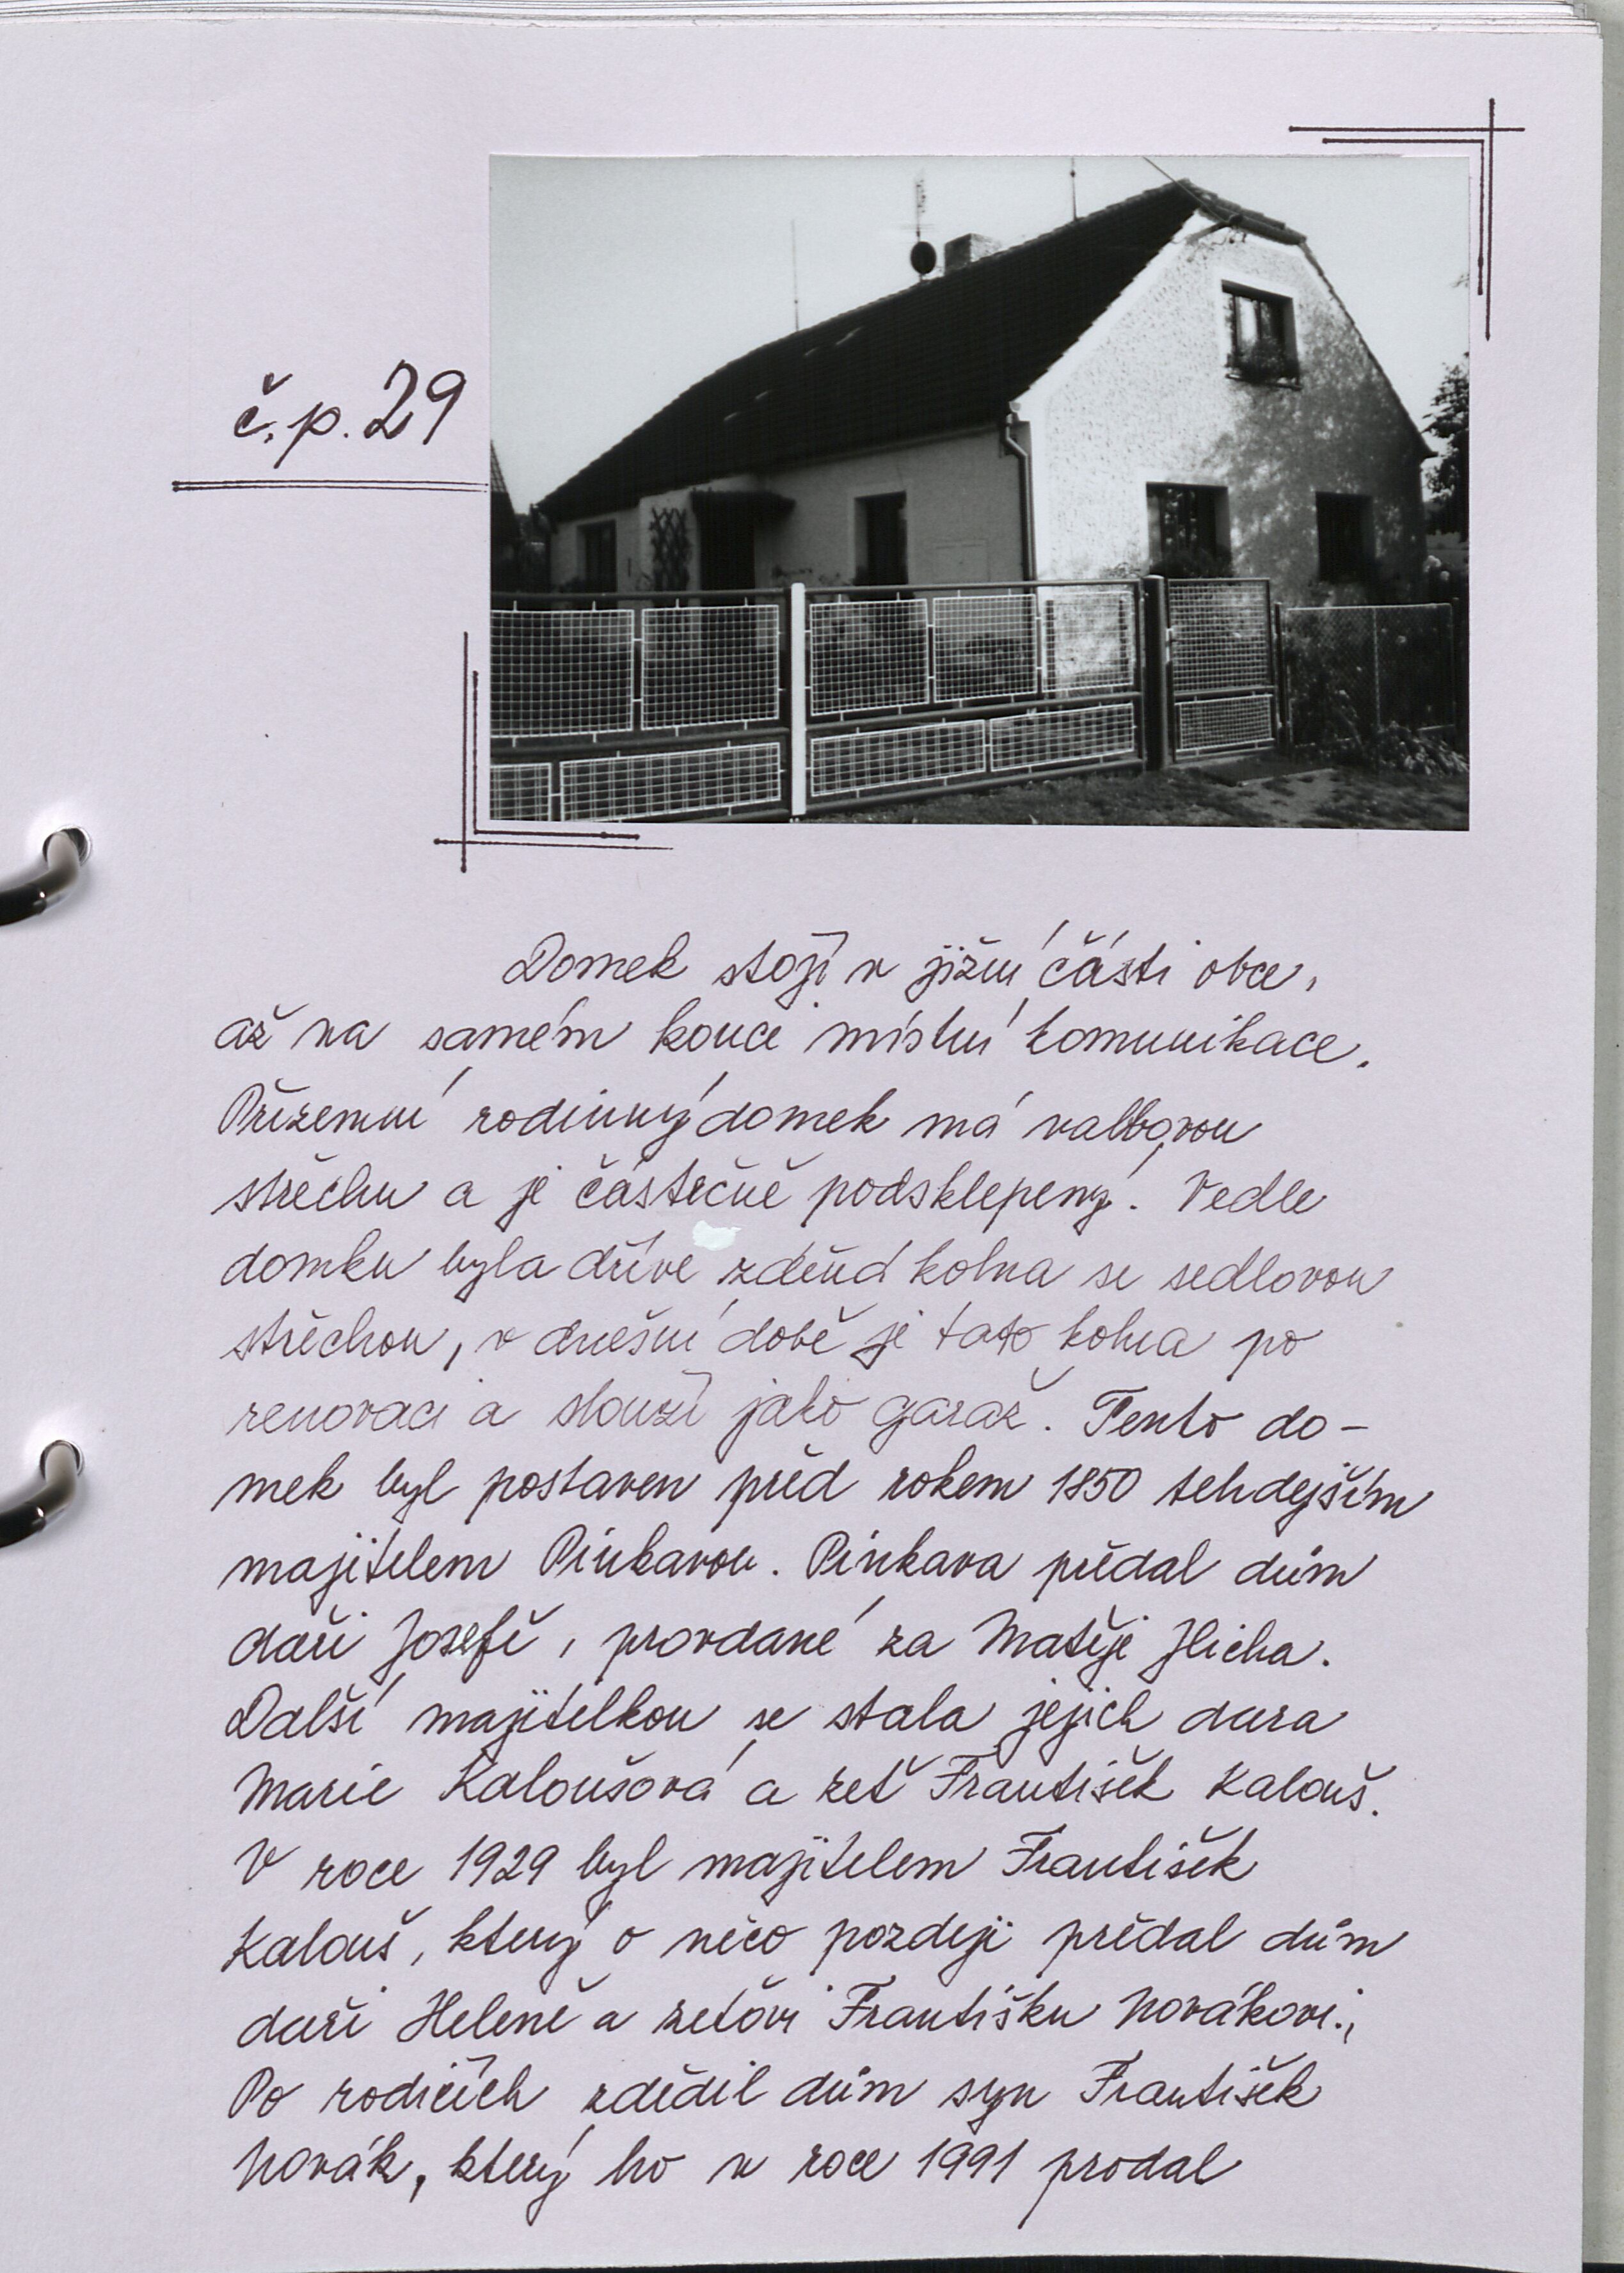 č.p. 29
Domek stojí v jižní části obce,
až na samém konci místní komunikace.
Přízemní rodinný domek má valbovou
střechu a je částečně podsklepený. Vedle
domku byla dříve zděná kolna se sedlovou
střechou, v dnešní době je tato kolna po
renovaci a slouží jako garáž. Tento do-
mek byl postaven před rokem 1850 tehdejším
majitelem Pinkavou. Pinkava předal dům
dceři Josefě, provdané za Matěje Jlicha.
Další majitelkou se stala jejich dcera
Marie Kaloušová a zeť František Kalouš.
V roce 1929 byl majitelem František
Kalouš, který o něco později předal dům
dceři Heleně a zeťovi Františku Novákovi.,
Po rodičích zdědil dům syn František
Novák, který ho v roce 1991 prodal